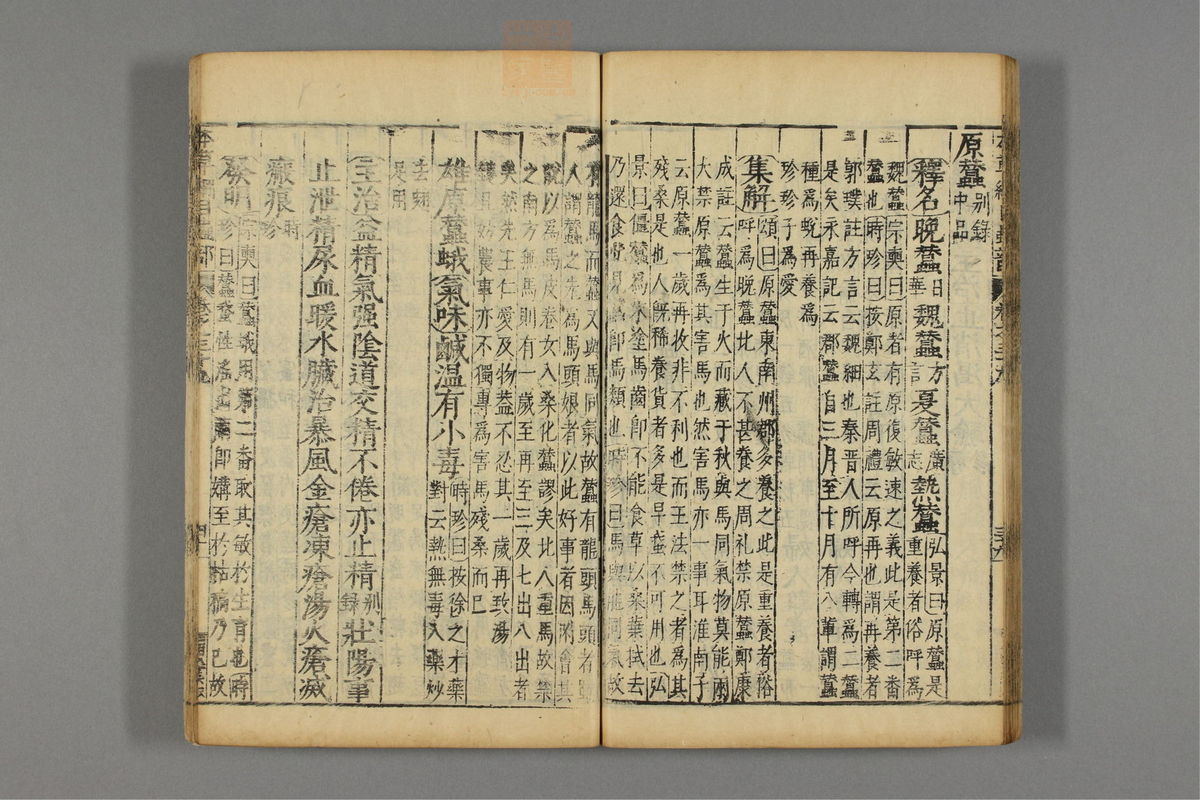 原蠶别錄中品
釋名晚蠶日華魏蠶方言夏蠶廣志熱蠶弘景曰原蠶是重養者俗呼為
魏蠶宗奭曰原者有原復敏速之義此是第二番
蠶也時珍曰按鄭玄註周禮云原再也謂再養者
郭璞註方言云魏細也秦晉人所呼今轉為二蠶
是矣永嘉記云郡蠶自三月至十月有八輩謂
種為蚖再養為
珍珍子為愛
集解頌曰原蠶東南州郡多養之此是重養者俗
呼為晚蠶北人不甚養之周礼禁原蠶鄭康
成註云蠶生于火而藏于秋與馬同氣物莫能兩
大禁原蠶為其害馬也然害馬亦一事耳淮南子
云原蠶一歲再收非不利也而王法禁之者為其
殘桑是也人旣稀養貨者多是早蛾不可用也弘
景曰僵蠶為末塗馬齒即不能食草以桑葉拭去
乃還食此見蠶即馬類也時珍曰馬與龍同氣故
有龍馬而蠶又與馬同氣故蠶有龍頭馬頭者
人謂蠶之先為馬頭娘者以此好事者因附會其
說以為馬皮卷女入桑化蠶謬矣北人重馬故禁
之南方無馬則有一歲至再至三及七出八出者
矣然先王仁愛及物蓋不忍其一歲再致湯
鑊且妨農事亦不獨專為害馬殘桑而已
雄原蠶蛾氣味鹹温有小毒時珍曰按徐之才藥對云熱無毒入藥炒
去翅
足用
主治益精氣强陰道交精不倦亦止精别錄壯陽事
止泄精尿血暖水臟治暴風金瘡凍瘡湯火瘡滅
瘢痕時珍
發明宗奭曰蠶蛾用第二番取其敏於生育也時
珍曰蠶蛾性淫出繭即媾至於枯槁乃已故